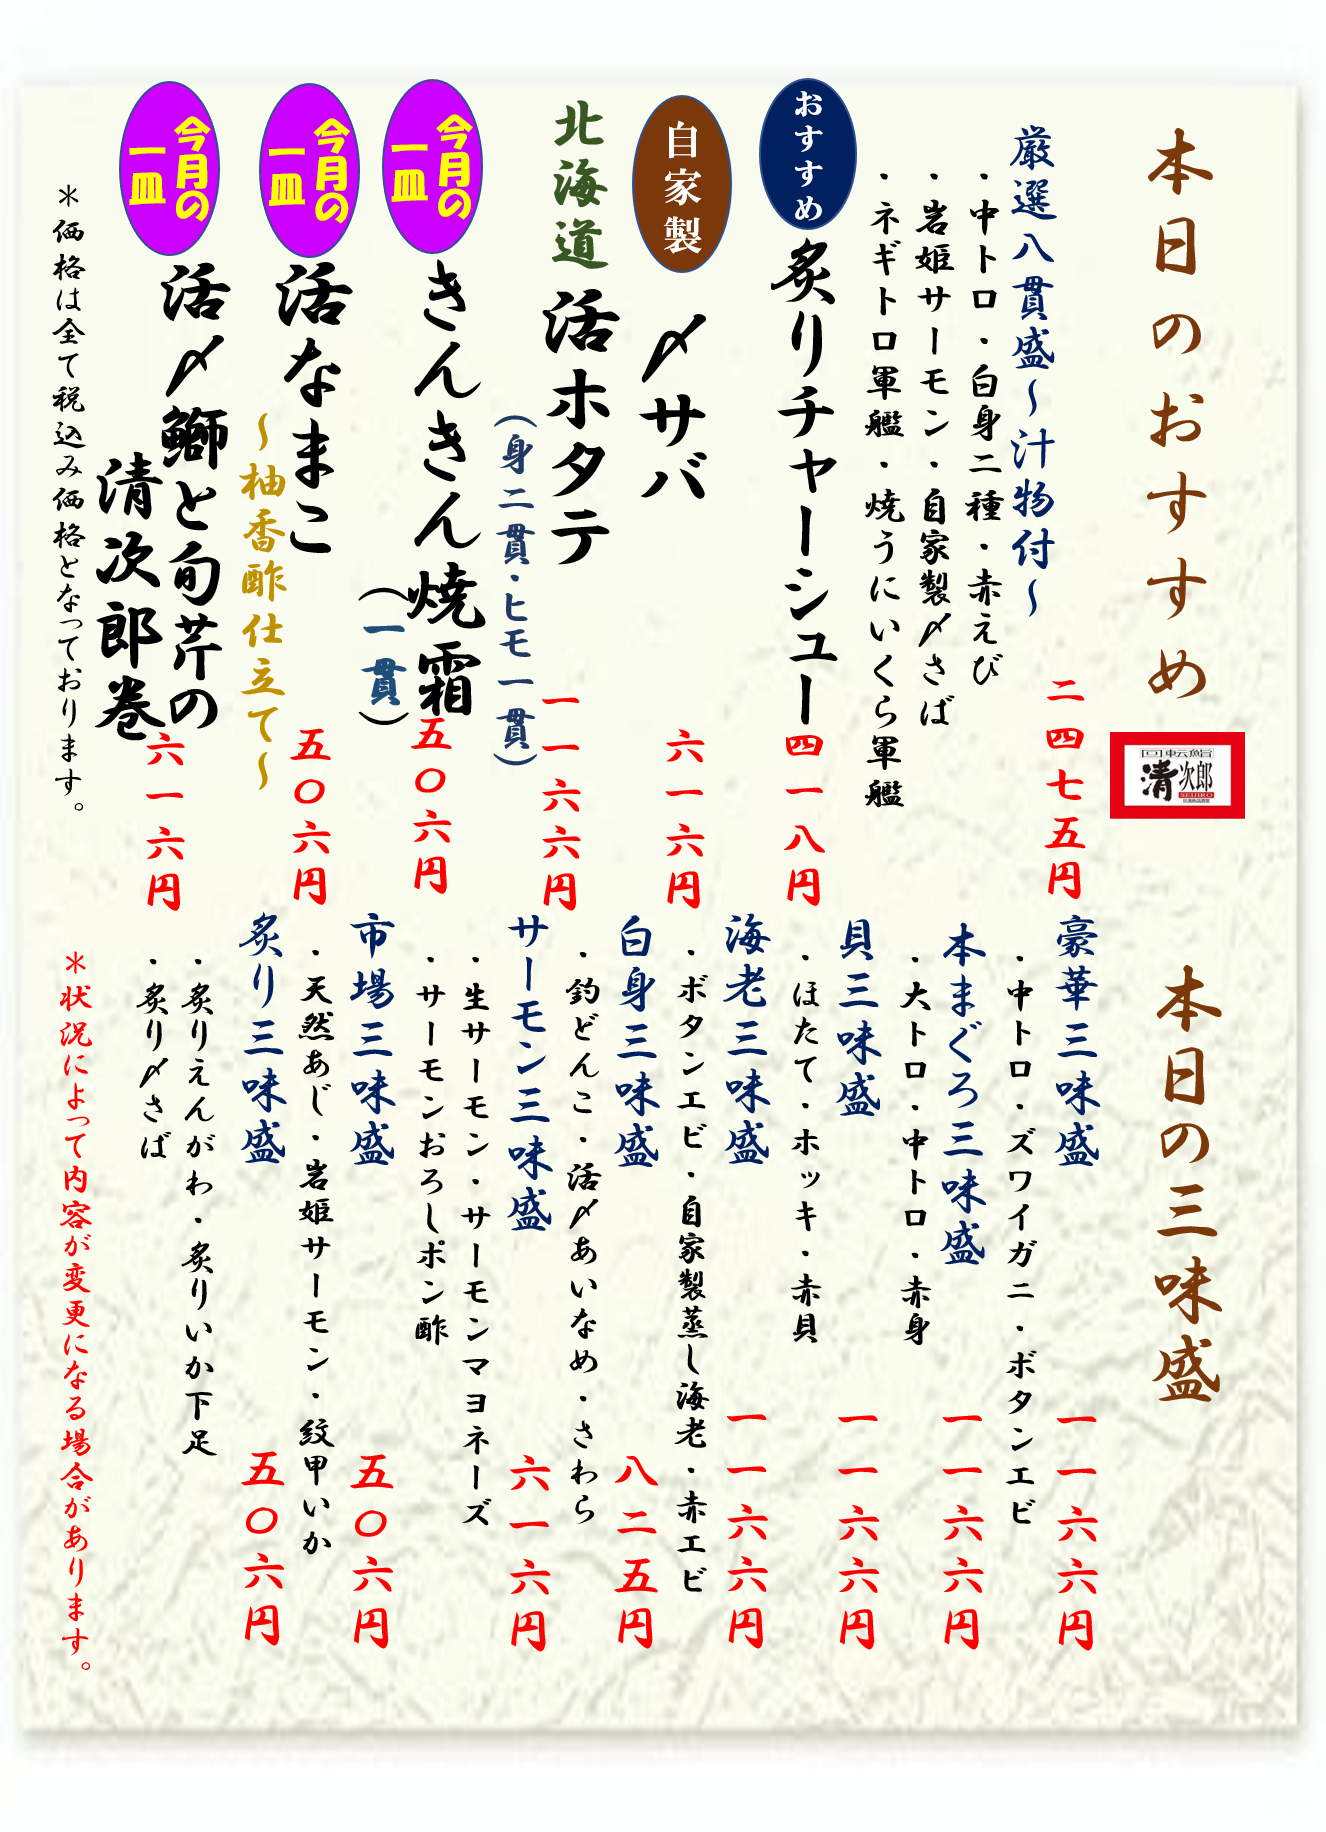 本日のおすすめ
回転鮨
清次郎
SEIJIRO
厳選八貫盛～汁物付～
二四七五円
・中トロ・白身二種・赤えび
・岩姫サーモン・自家製〆さば
・ネギトロ軍艦・焼うにいくら軍艦
おすすめ
炙りチャーシュー
四一八円
自家製
〆サバ
六一六円
北海道
活ホタテ
一一六六円
（身二貫・ヒモ一貫）
今月の
一皿
きんきん焼霜
五〇六円
（一貫）
今月の
一皿
活なまこ
五〇六円
～柚香酢仕立て～
今月の
一皿
活〆鰤と旬芹の
清次郎巻
六一六円
＊価格は全て税込み価格となっております。
本日の三味盛
豪華三味盛
一一六六円
・中トロ・ズワイガニ・ボタンエビ
本まぐろ三味盛
一一六六円
・大トロ・中トロ・赤身
貝三味盛
一一六六円
・ほたて・ホッキ・赤貝
海老三味盛
一一六六円
・ボタンエビ・自家製蒸し海老・赤エビ
白身三味盛
八二五円
・釣どんこ・活〆あいなめ・さわら
サーモン三味盛
六一六円
・生サーモン・サーモンマヨネーズ
・サーモンおろしポン酢
市場三味盛
五〇六円
・天然あじ・岩姫サーモン・紋甲いか
炙り三味盛
五〇六円
・炙りえんがわ・炙りいか下足
・炙り〆さば
＊状況によって内容が変更になる場合があります。